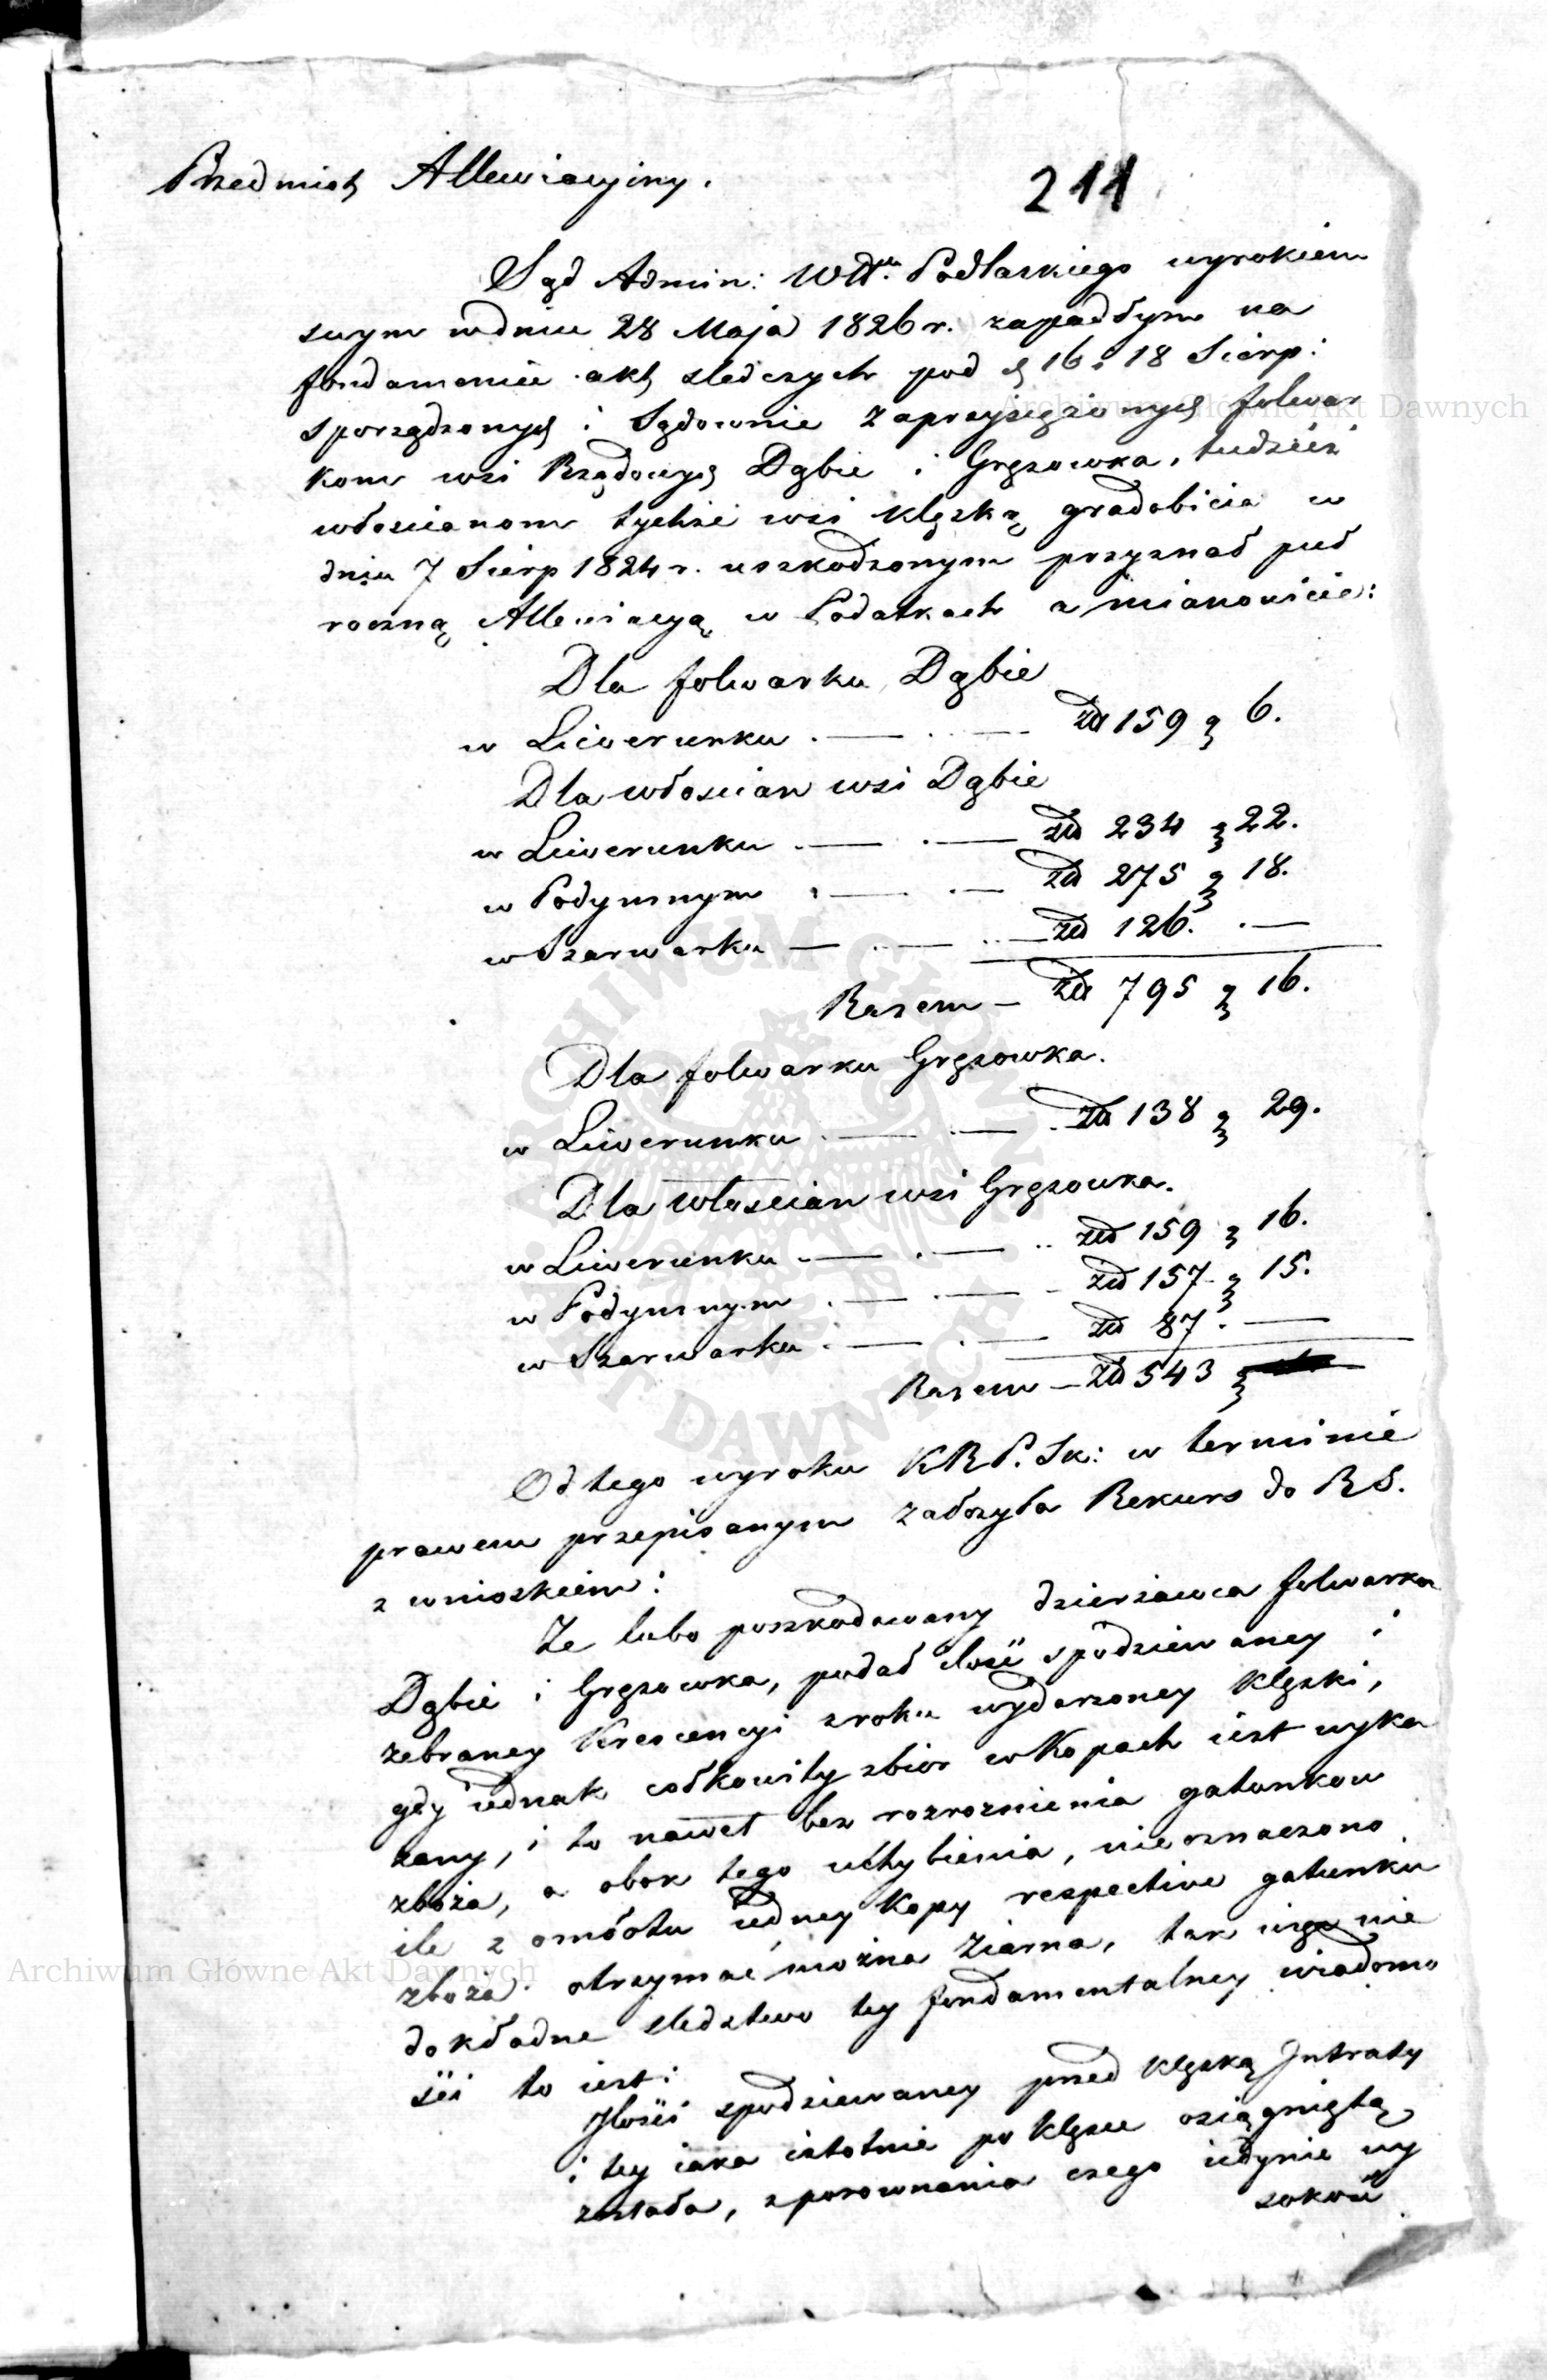 Przedmiot Allewiacyjny.
211
Sąd Admin: Wdtwa Podlaskiego wyrokiem
swym w dniu 28 Maja 1826 r. zapadłym na
fundamencie akt śledczych pod d 16 i 18 Sierp:
sporządzonych i Sądownie zaprzysiężonych folwar
kom wsi Rządowych Dąbie i Gręzowka, tudzież
włościanom tychże wsi klęską gradobicia w
dniu 7 Sierp 1824 r. uszkodzonym przyznał puł
roczną Allewiacyą w Podatkach a mianowicie:
Dla folwarku Dąbie
w Liwerunku . — . — zł 159 g 6.
Dla włościan wsi Dąbie
w Liwerunku . — . — zł 234 g 22.
w Podymnym . — . — zł 275 g 18.
w Szarwarku — . — .. — zł 126. . —
Razem — zł 795 g 16.
Dla folwarku Gręzowka.
w Liwerunku . — . — . zł 138 g 29.
Dla włościan wsi Gręzowka.
w Liwerunku . — . — .. zł 159 g 16.
w Podymnym . — . — . zł 157 g 15.
w Szarwarku . — . — zł 87. —
Razem — zł 543 g —
Od tego wyroku KRP. Sk: w terminie
prawem przepisanym założyła Rekurs do RS.
z wnioskiem:
Że lubo poszkodowany dzierżawca folwarku
Dąbie i Gręzowka, podał ilość spodziewaney i
zebraney Krescencyi z roku wydarzoney klęski,
gdy iednak całkowity zbior w Kopach iest wyka
zany, i to nawet bez rozroznienia gatunkow
zboża, a obok tego uchybienia, nie oznaczono
ile z omłótu iedney Kopy respective gatunku
zboża otrzymać można ziarna, tak więc nie
dokładne śledztwo tey fundamentalney wiadomo
ści to iest:
Jlości spodziewaney przed klęską Jntraty
i tey iaka istotnie po klęsce osiągniętą
została, z porownania czego iedynie wy
sokość
Archiwum Główne Akt Dawnych
Archiwum Główne Akt Dawnych
ARCHIWUM GŁÓWNE AKT DAWNYCH